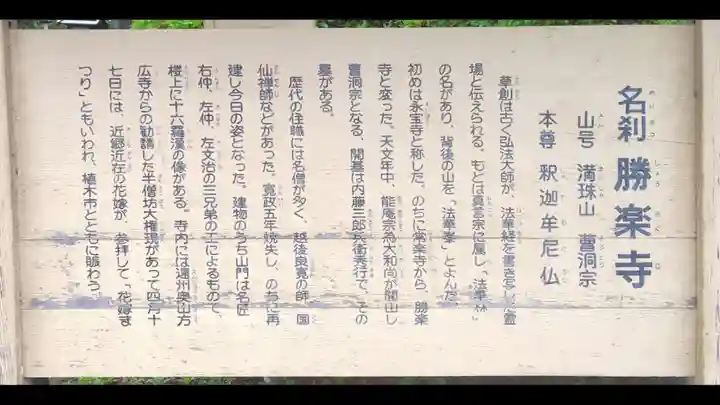 名刹 勝楽寺
山号 満珠山 曹洞宗
本尊 釈迦牟尼仏
草創は古く弘法大師が、法華経を書き写し霊
場と伝えられる。もとは真言宗に属し、「法華林」
の名があり、背後の山を「法華峯」とよんだ。
初めは永宝寺と称した。のちに常楽寺から、勝楽
寺と変った。天文年中、能庵宗為大和尚が開山し
曹洞宗となる、開基は内藤三郎兵衛秀行で、その
墓がある。
歴代の住職には名僧が多く、越後良寛の師、国
仙禅師などがあった。寛政五年焼失し、のちに再
建し今日の姿となった。建物のうち山門は名匠
右仲、左仲、左文治の三兄弟の工によるもので、
楼上に十六羅漢の像がある。寺内には遠州奥山方
広寺からの勧請した半僧坊大権現があって四月十
七日には、近郷近在の花嫁が、参拝して「花嫁ま
つり」ともいわれ、植木市とともに賑わう。